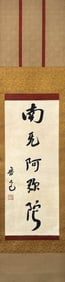 南无阿弥陀